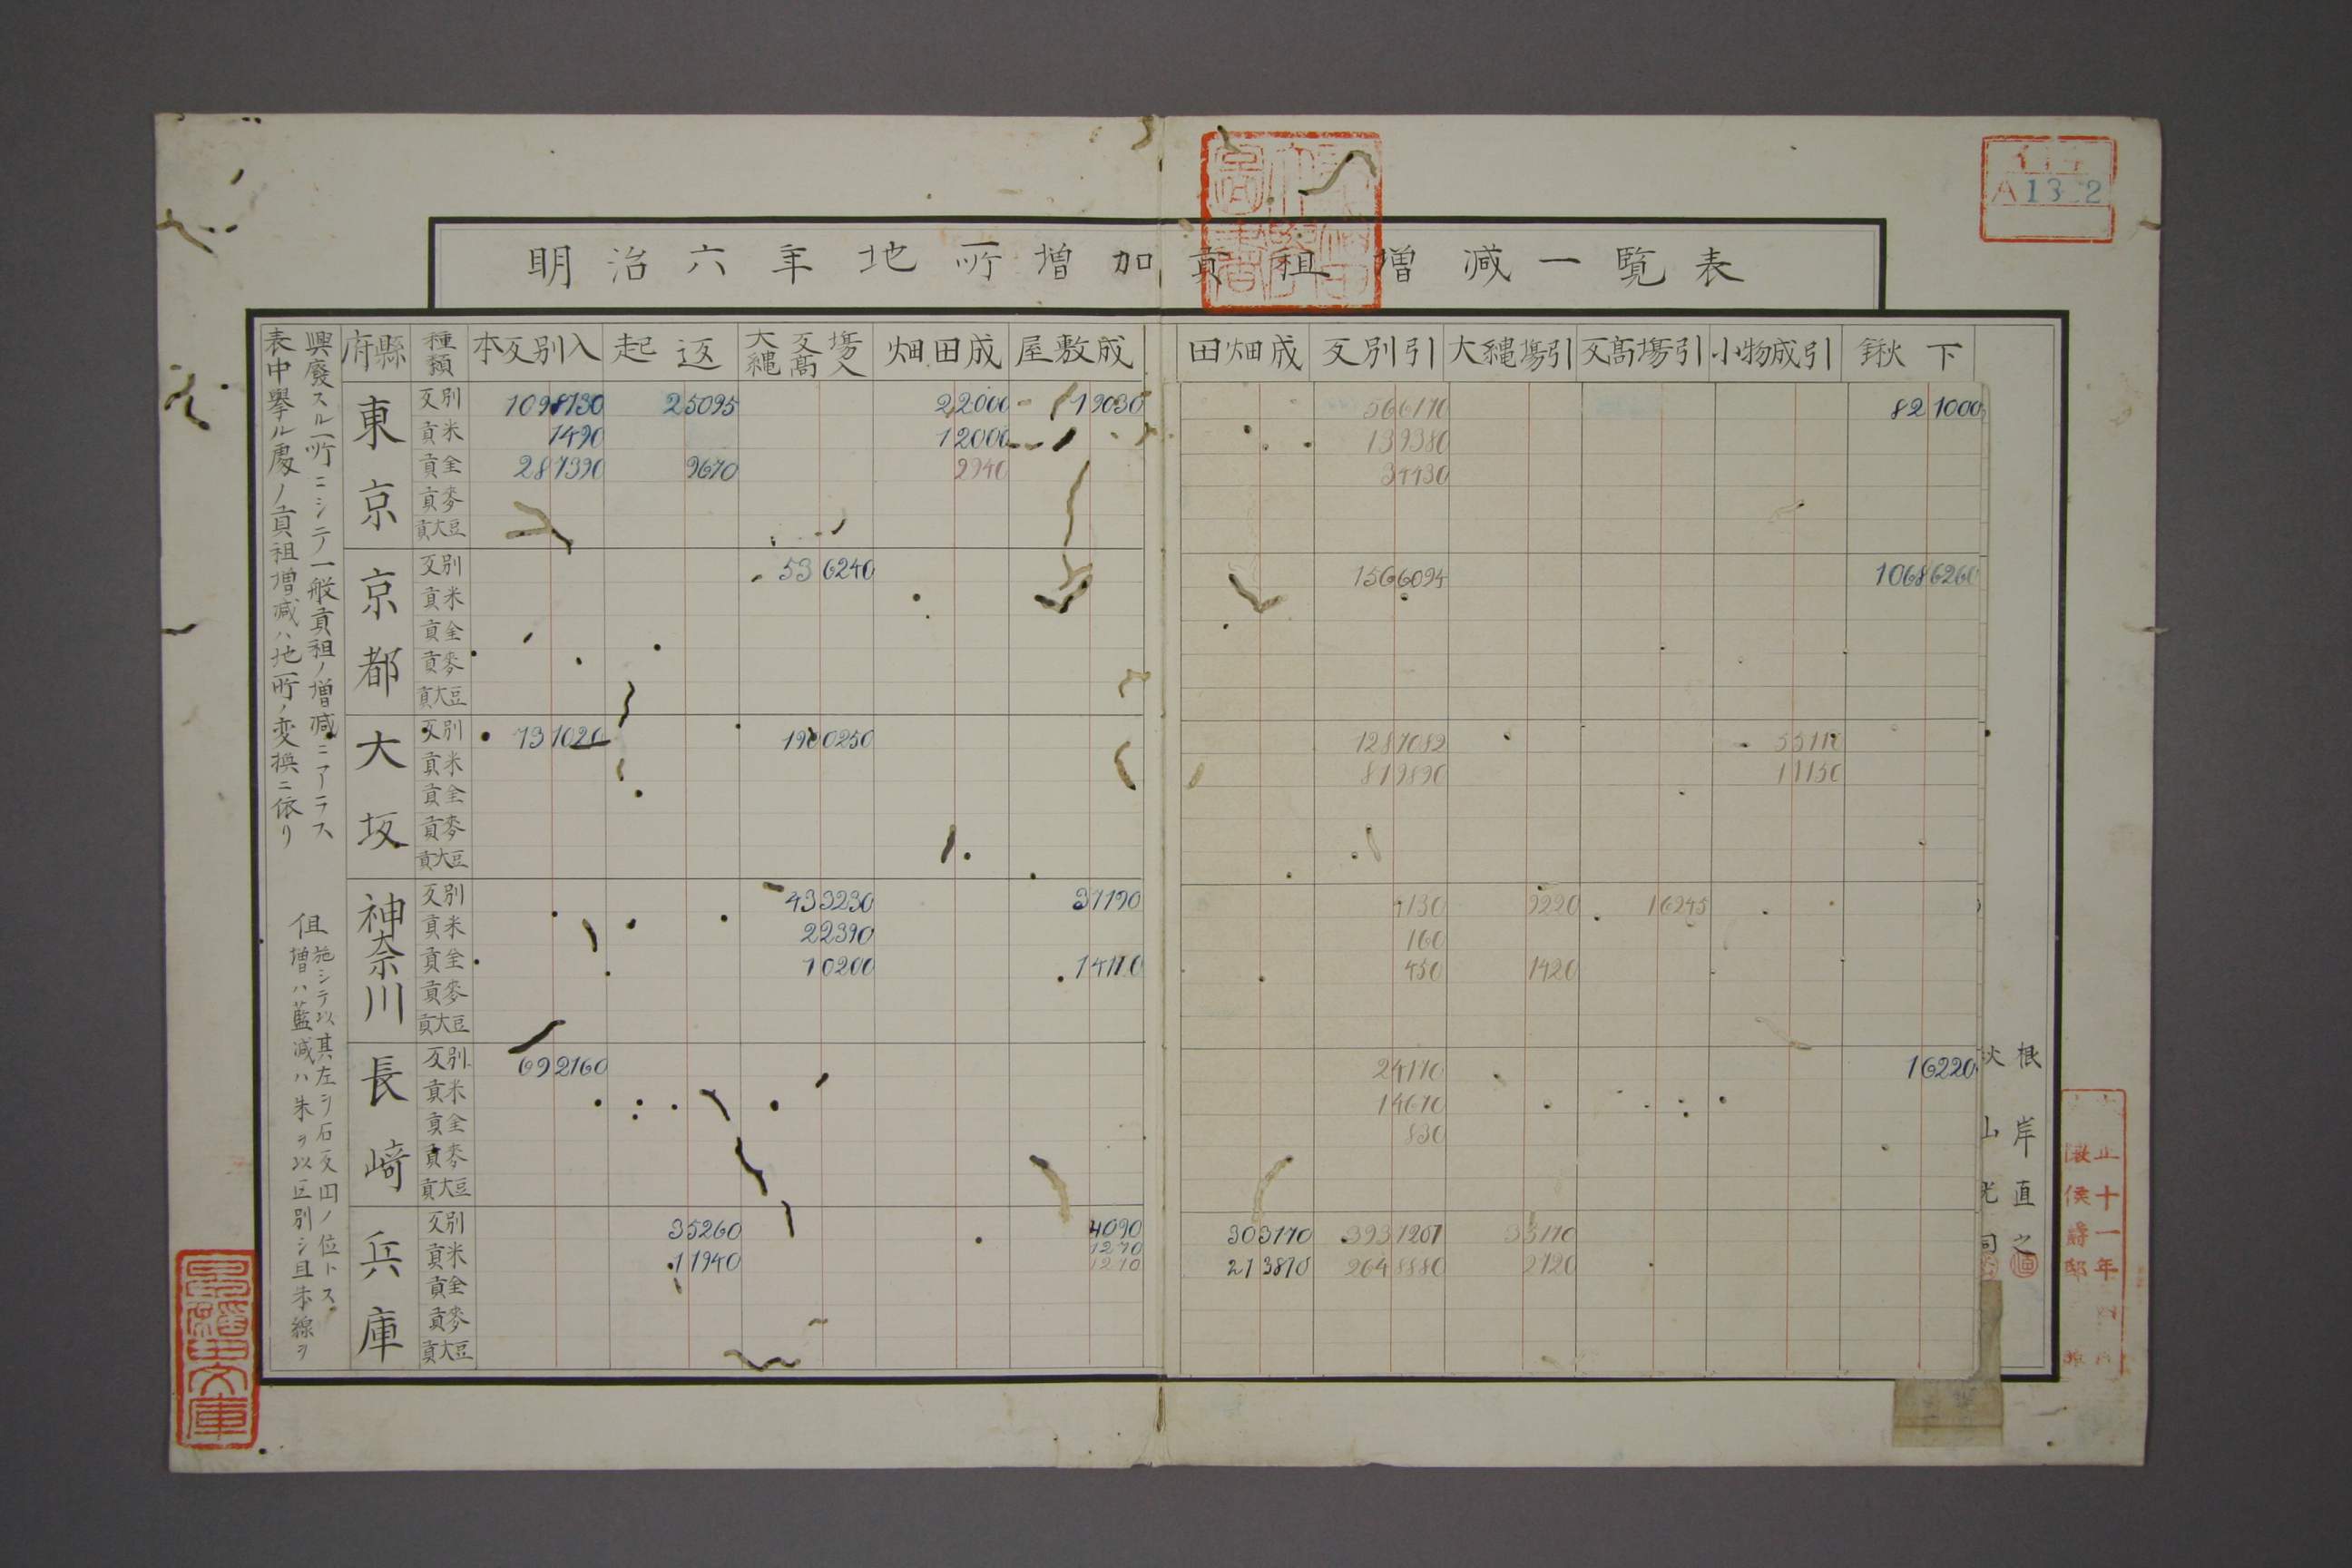 明治六年地所増加貢租増減一覧表
A1322
府縣 種類 本反別入 起返 大縄反高場入 畑田成 屋敷成 田畑成 反別引 大縄場引 反高場引 小物成引 鍬下
東京
反別 1098730 25095 22000 19030 566170 821000
貢米 1490 12000 139380
貢金 287390 9670 2940 34430
貢麥
貢大豆
京都
反別 536240 1566094 10686260
貢米
貢金
貢麥
貢大豆
大坂
反別 731020 1287082
貢米 819890 11150
貢金
貢麥
貢大豆
神奈川
反別 433230 37190 4130 9220 16245
貢米 22390 160
貢金 10200 14170 450 1420
貢麥
貢大豆
長崎
反別 692160 24170 16220
貢米 14670
貢金 830
貢麥
貢大豆
兵庫
反別 35260 4090 303170 3931207 33170
貢米 11940 1270 213870 2648880 2720
貢金
貢麥
貢大豆
表中擧ル處ノ貢租増減ハ地所ノ変換ニ依リ
興廢スル所ニシテ一般貢租ノ増減ニアラス
但
増ハ藍減ハ朱ヲ以区別シ且朱線ヲ
施シテ以其左ヲ石反円ノ位トス
根岸直之
山光
文庫